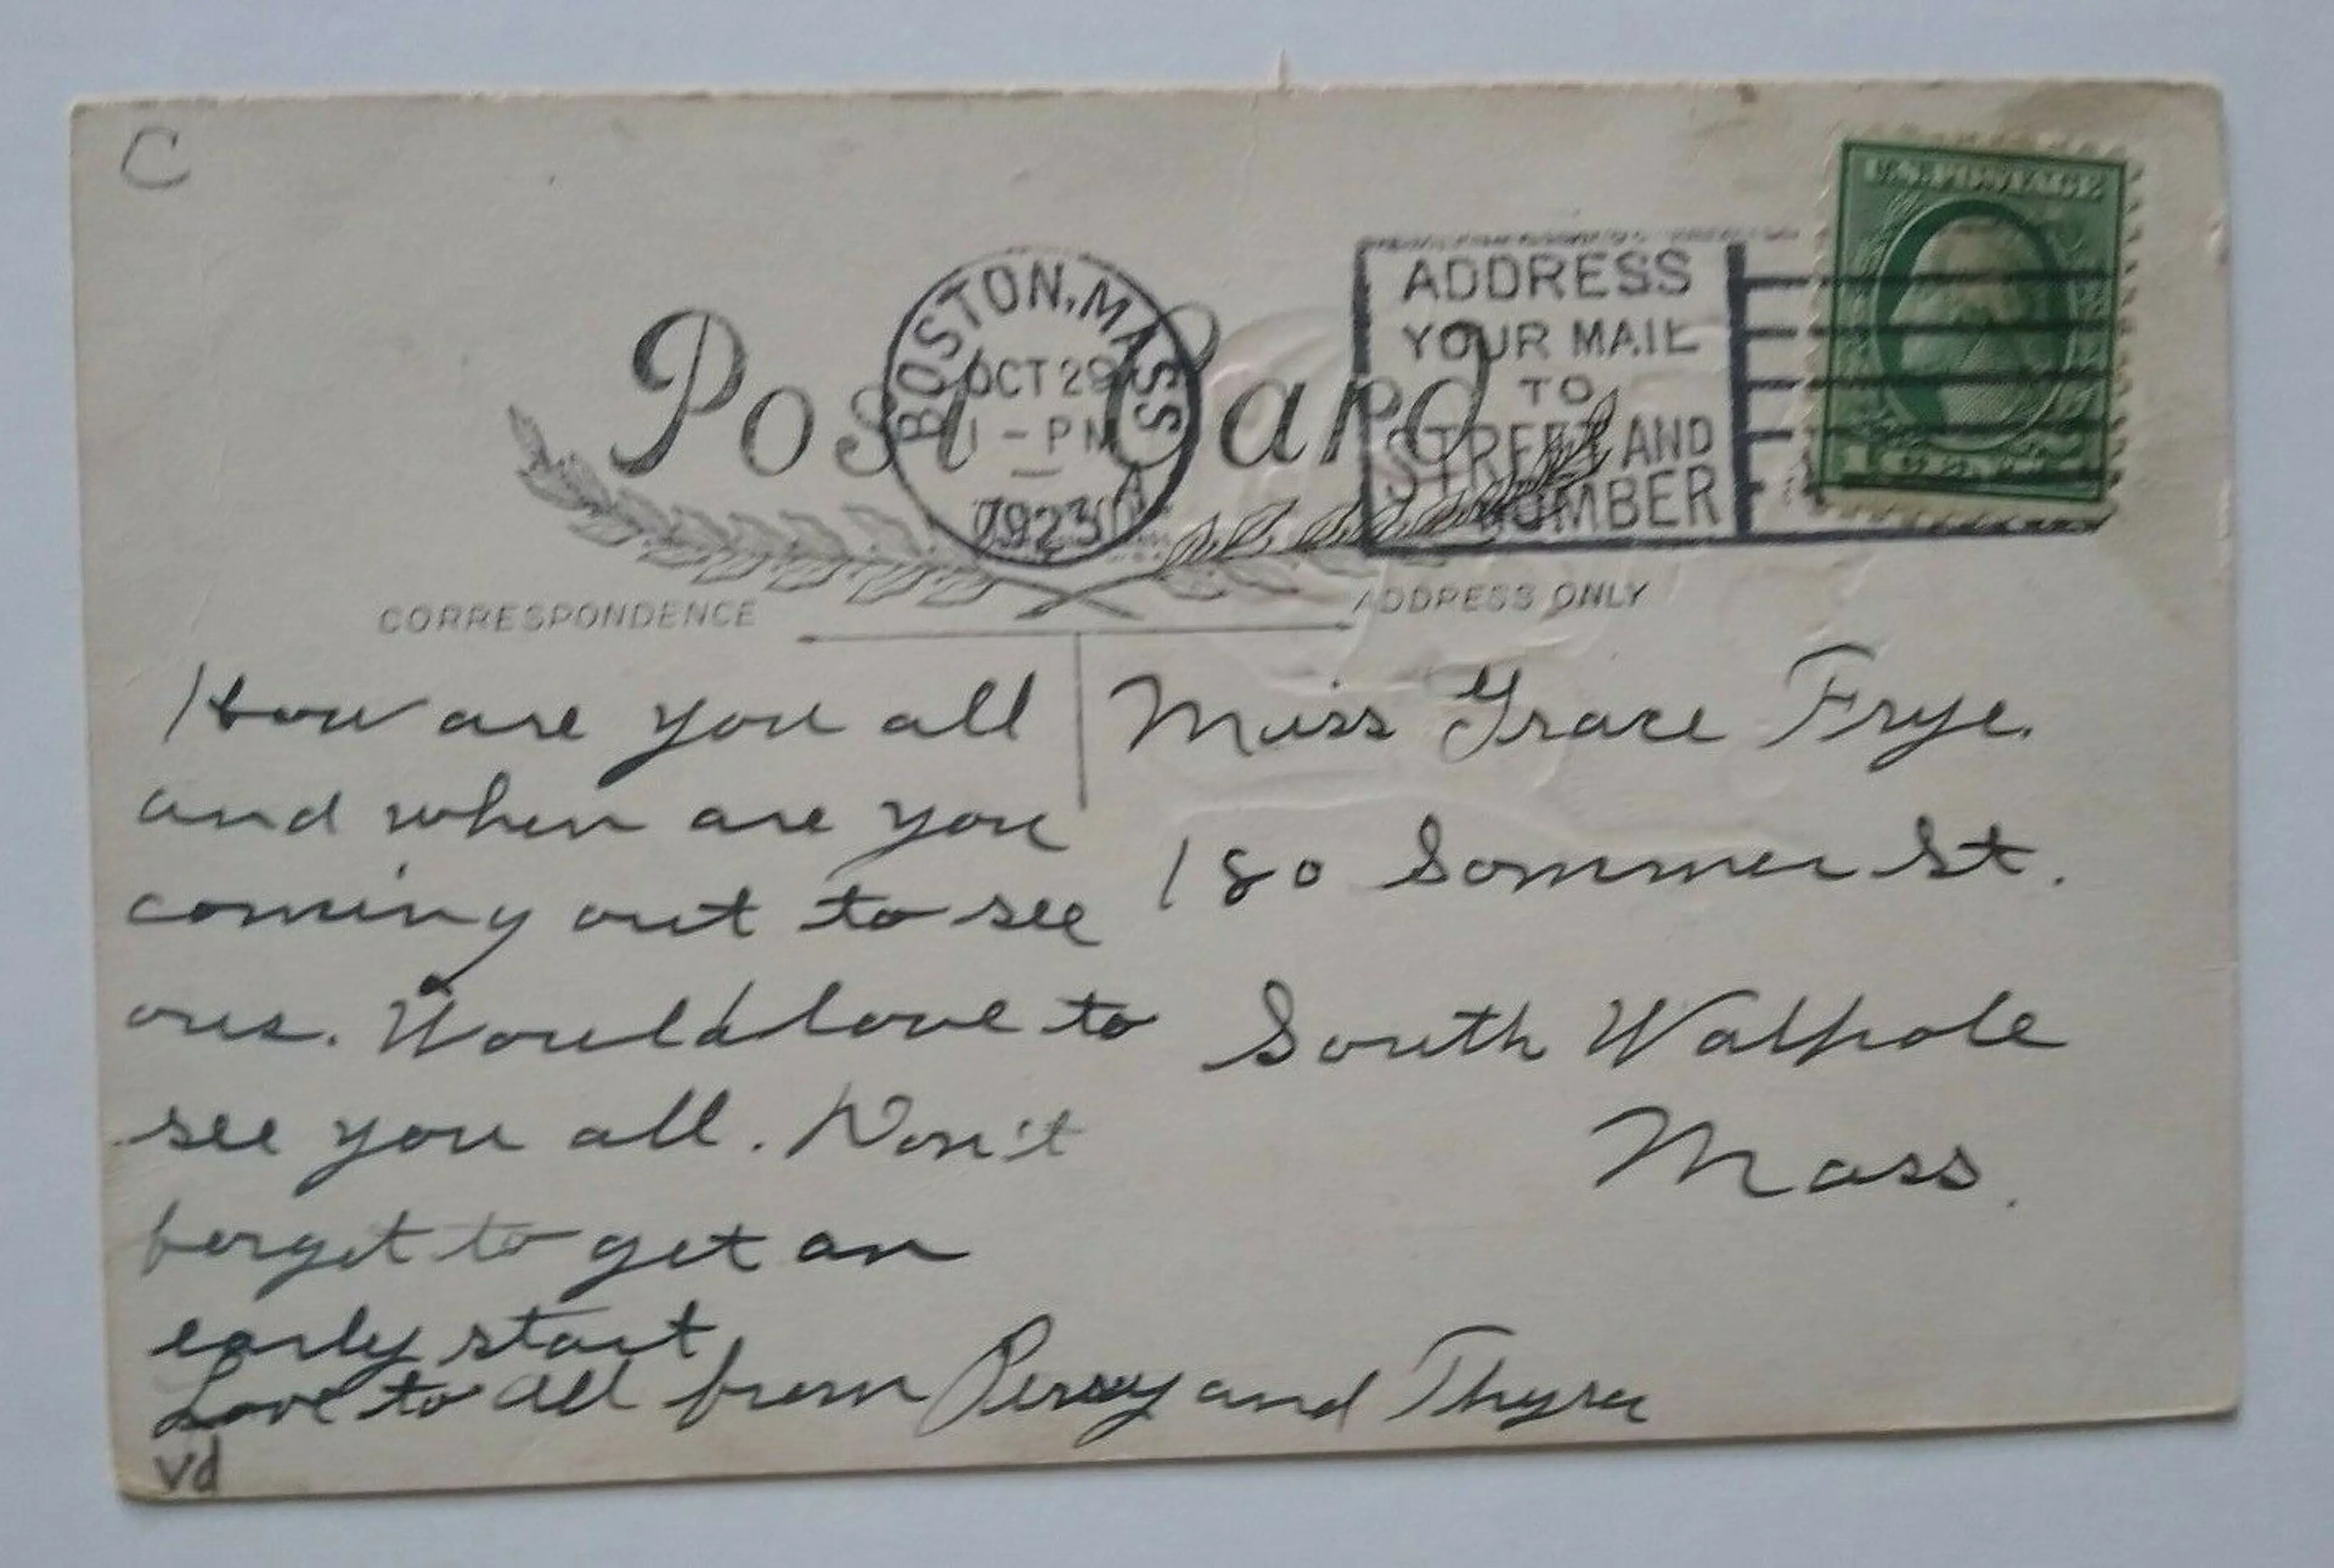 C
U.S. POSTAGE
BOSTON, MASS
OCT 29
1 - PM
1923
ADDRESS
YOUR MAIL
TO
STREET AND
NUMBER
Post Card
CORRESPONDENCE
ADDRESS ONLY
How are you all
and when are you
coming out to see
ous. Would love to
see you all. Don't
forget to get an
early start
Love to all from Percy and Thyra
vd
Miss Grace Frye.
180 Sommer St.
South Walpole
Mass.